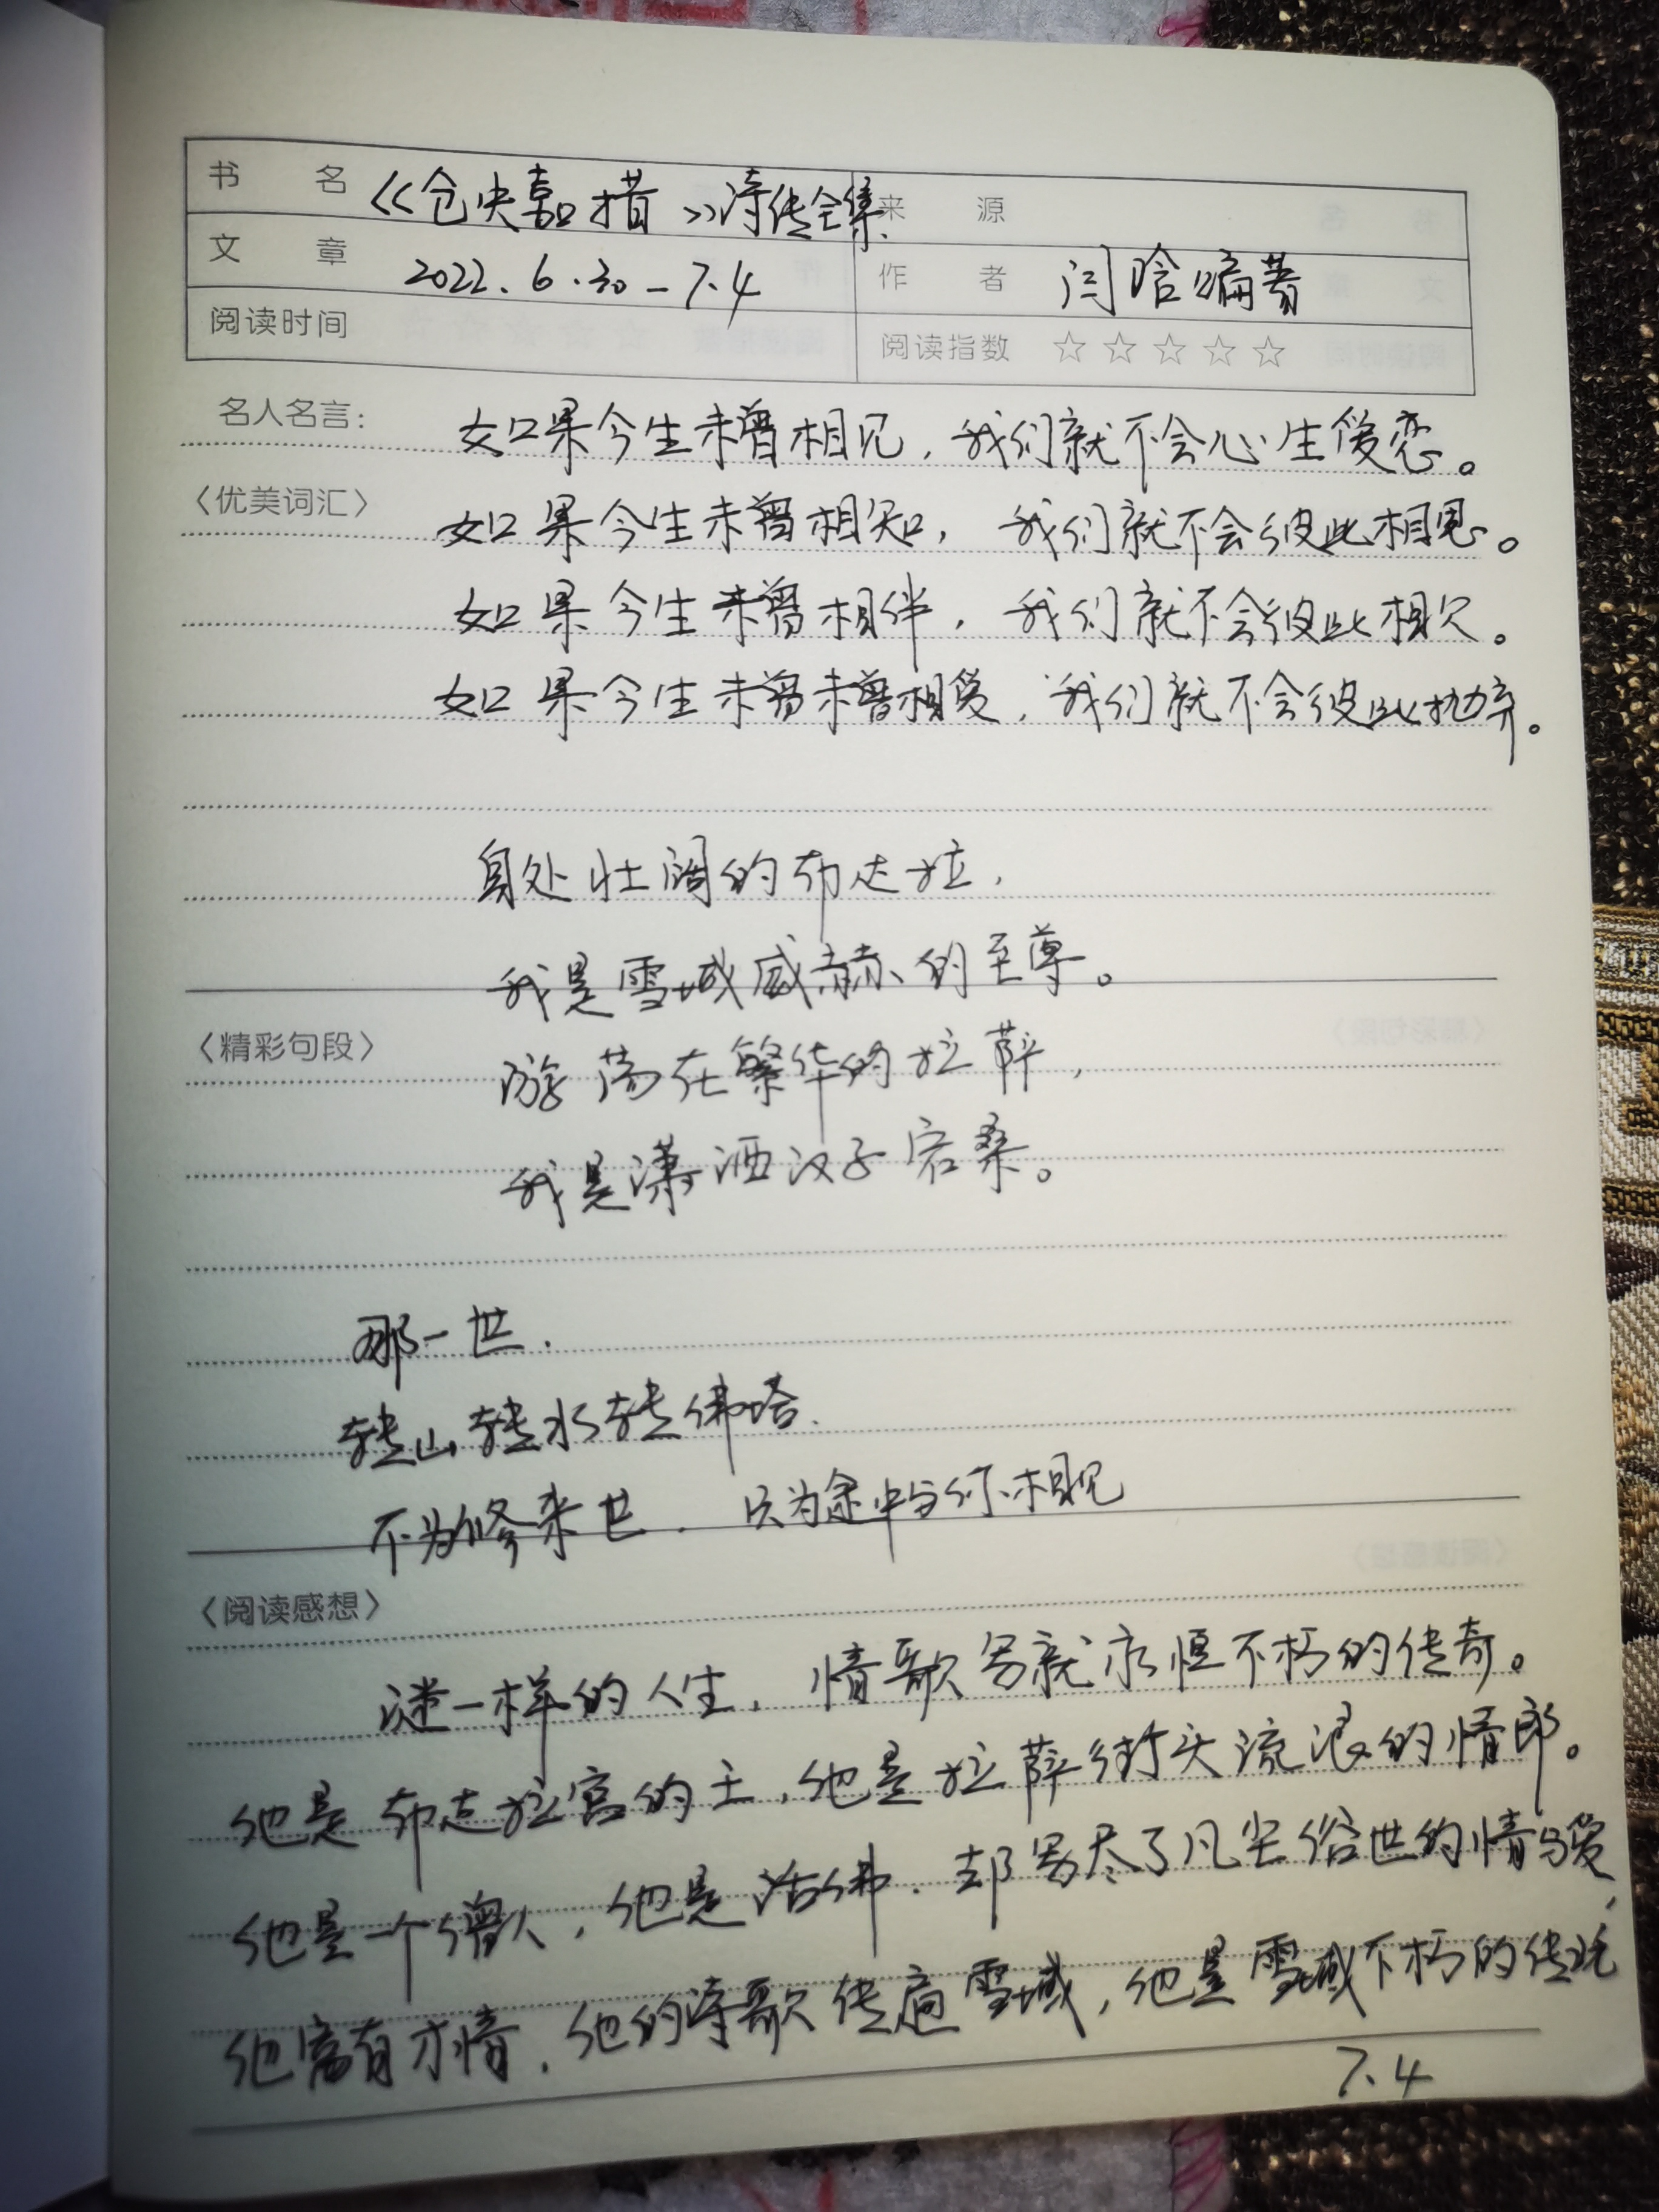 书 名 《仓央嘉措》诗传全集 来 源
文 章 2022.6.30-7.4 作 者 闫晗编著
阅读时间 阅读指数 ☆☆☆☆☆
名人名言: 如果今生未曾相见,我们就不会心生爱恋。
〈优美词汇〉 如果今生未曾相知,我们就不会彼此相思。
如果今生未曾相伴,我们就不会彼此相欠。
如果今生未曾未曾相爱,我们就不会彼此抛弃。
身处壮阔的布达拉,
我是雪域威赫的至尊。
〈精彩句段〉 游荡在繁华的拉萨,
我是潇洒汉子宕桑。
那一世.
转山转水转佛塔.
不为修来世.只为途中与你相见
〈阅读感想〉
谜一样的人生,情歌写就永恒不朽的传奇。
他是布达拉宫的王,他是拉萨街头流浪的情郎。
他是一个僧人,他是活佛.却写尽了凡尘俗世的情与爱,
他富有才情,他的诗歌传遍雪域,他是雪域不朽的传说
7.4